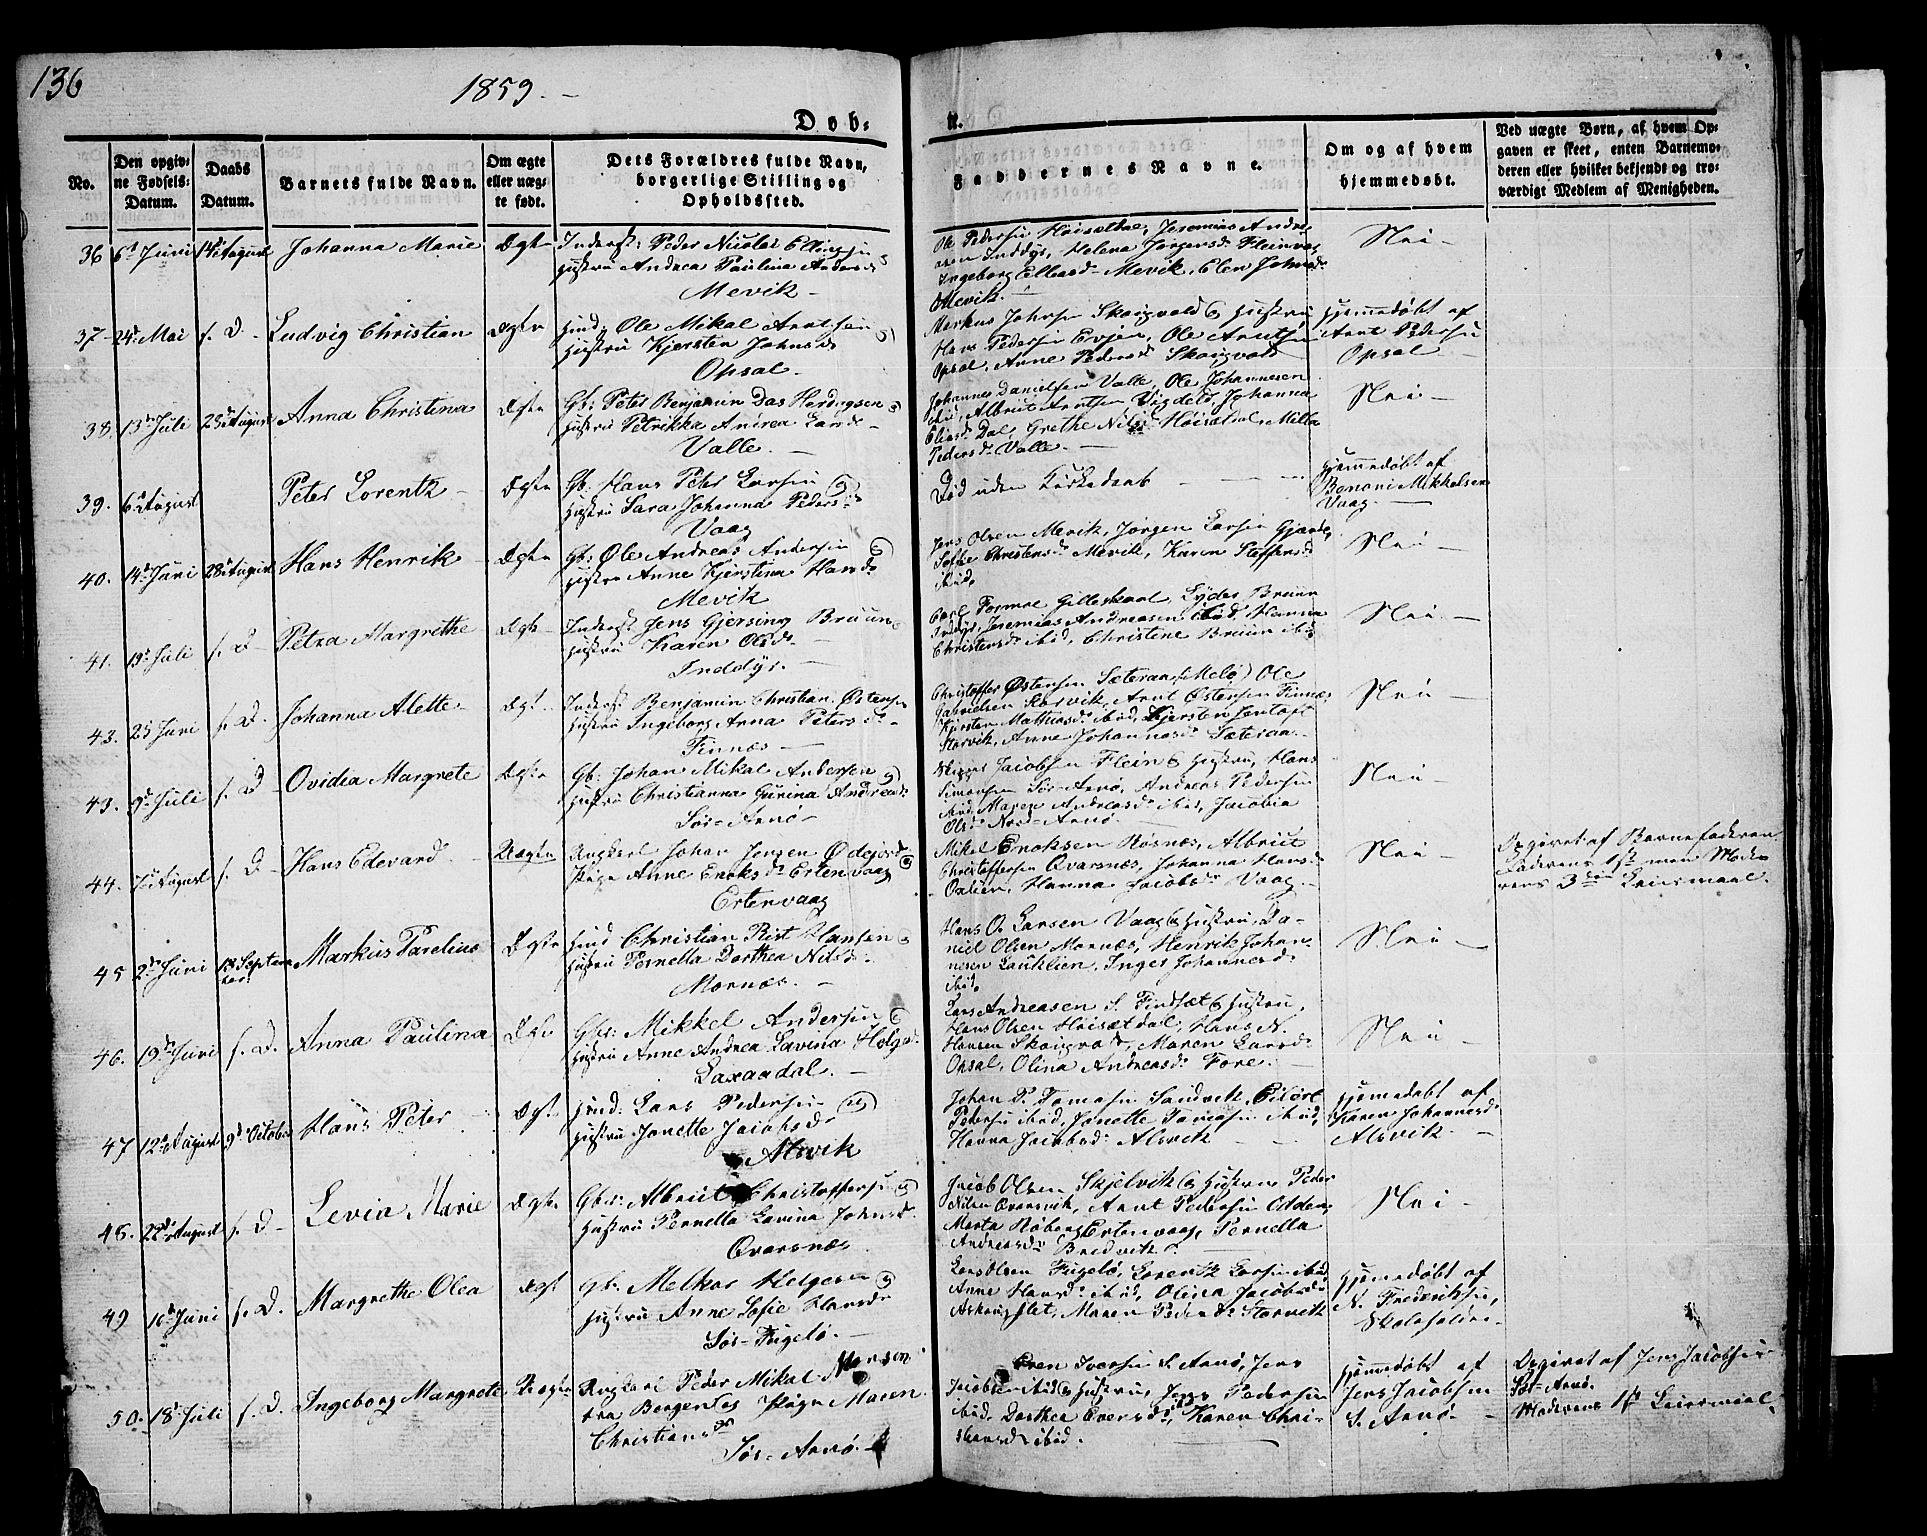 136
1859. –
Døb-
te.
No.
Den opgiv-
ne Fødsels-
Datum.
Daabs
Datum.
Barnets fulde Navn.
Om ægte
eller uæg-
te født.
Dets Forældres fulde Navn,
borgerlige Stilling og
Opholdssted.
Faddernes Navne.
Om og af hvem
hjemmedøbt.
Ved uægte Børn, af hvem Op-
gaven er skeet, enten Barnemo-
deren eller hvilket bekjendt og tro-
værdigt Medlem af Menigheden.
36 6d Juni 14d August Johanna Marie Ægte
Inderst: Peder Nicolai Ellingsen
Hustru Andrea Paulina Andersd
Mevik –
Ole Pedersen Høisætdal, Jeremias Andre-
asen Inddyr, Helena Jørgensd Fleinvær
Ingeborg Ellasd Mevik, Elen Johnsd
Mevik. –
Nei –
37 24d Mai s. D. Ludvig Christian Ægte
Huusd, Ole Mikal Arntsen
Hustru Kjersten Johnsd
Opsal.
Markus Johnsen Skougvold & Hustru
Hans Pedersen Evjen, Ole Arntsen
Opsal, Anne Pedersd Skougvold
Hjemmedøbt af
Arnt Pedersen
Opsal –
38. 13d Juli 25d August Anna Christina Ægte
Gb: Peter Benjamin Das Herdagsen
Hustru Petrikka Andrea Larsd –
Valle. –
Johannes Danielsen Valle, Ole Johannesen
ibid, Albrit Arntsen Vigdel, Johanna
Eliasd Dal, Grethe Nilsd Høisætdal, Milla
Pedersd Valle. –
Nei –
39. 6d August Peter Lorentz – Ægte
Gb. Hans Peter Larsen
Hustru Sara Johanna Pedersd
Vaag
Død uden Kirkedaab –
Hjemmedøbt af
Benoni Mikkelsen
Vaag
40. 14d Juni 28d August Hans Henrik Ægte
Gb: Ole Andreas Andersen
Hustru Anne Kjerstina Hansd
Mevik
Jens Olsen Mevik, Jørgen Larsen Gjærde,
Sofie Christensd Mevik, Karen Steffensd
ibid,
Nei –
41. 19d Juli s. D – Petra Margrethe Ægte
Inderst. Jens Gjersing Bruun
Hustru Karen Olsd
Inddyr. –
Carl Formoe Gilleskaal, Lyder Bruun
Inddyr, Jeremias Andreasen ibid, Hanna
Christensd ibid, Christine Bruun ibid
Nei –
43. 25 Juni s. D. Johanna Alette Ægt
Inderst Benjamin Christian Østensen
Hustru Ingeborg Anna Petersd –
Finnæs –
Christoffer Østensen Sæteraa (Melø) Ole
Gabrielsen Storvik, Arnt Østensen Finnæs
Kjersten Mathiasd ibid, Kjersten Jentoft
Storvik, Anne Johannesd Sæteraa –
Nei –
43. 9d Juli s. D Ovidia Margrete Ægte
Gb: Johan Mikal Andersen
Hustru Christianna Gurina Andreasd
Sør-Arnø –
Jacobsen Flein & Hustru, Hans
Simonsen Sør-Arnø, Andreas Pedersen
ibid Maren Andreasd ibid, Jacobia
Olsd Nord-Arnø.
Nei –
44. 7d August s. D Hans Edevard – Uægte
Ungkarl Johan Jensen Ødejord
Pige Anne Enoksd Ertenvaag
Ertenvaag
Mikel Enoksen Røsnæs, Albriit
Christoffersen Qvarsnæs, Johanna Hansd
Oxlien, Hanna Jacobsd Vaag. –
Nei –
Opgivet af Barnefaderen
Faderens 1ste men Mode-
rens 3die Leiermaal.
45 2d Juni 13d Septem
ber. Markus Parelius Ægte
Huusd Christian Rist Hansen
Hustru Pernella Dorthea Nilsd.
Mørnæs. –
Hans O. Larsen Vaag & Hustru, Da-
niel Olsen Mørnæs, Henrik Johan-
nesen Lauklien, Inger Johannesd
ibid,
Nei –
46. 19d Juni s. D. Anna Paulina Ægte
Gbr: Mikkel Andersen
Hustru Anne Andrea Lavina Holgersd
Laxaadal. –
Lars Andreasen S. Findsæt & Hustru,
Hans Olsen Høisætdal, Hans N.
Hansen Skougvold, Maren Larsd
Opsal, Olina Andreasd Fore. –
Nei –
47 12d August 9d October Hans Peter Ægt
Huusd: Lars Pedersen
Hustru Janette Jacobsd
Alsvik
Johan P. Tomasen Sandvik,
Pedersen ibid, Janette Tomasen ibid,
Hanna Jacobsd Alsvik – –
Hjemmedøbt af
Karen Johannesd
Alsvik. –
48. 22d August s. D – Levia Marie Ægte
Gbr: Albriit Christoffersen
Hustru Pernella Lavina Johnsd
Qvarsnæs
Jacob Olsen Skjelvik & Hustru Peder
Nilsen Qvarsvik, Arnt Pedersen Odden,
Merta Høberg Ertenvaag, Pernella
Andreasd Bredvik.
Nei –
49 10d Juni s. D. Margrethe Olea Ægt
Gb. Melkor Helgesen
Hustru Anne Sofie Hansd
Sør-Fugelø. –
Lars Olsen Fugelø, Lorentz Larsen ibid,
Anne Hansd ibid, Olina Jacobsd
Askougslet, Maren Pedersd Storvik
Hjemmedøbt af
N. Frederiksen,
Skoleholder –
50. 18d Juli s. D. Ingeborg Margrete Uægte
Ungkarl Peder Mikal Monsen
fra Bergen & Pige Maren
Christiansd
Sør-Arnø –
Even Iversen S. Arnø, Jens
Jacobsen ibid & Hustru, Jens Pedersen
ibid. Dorthea Eversd ibid, Karen Chri-
stiansd ibid.
Hjemmedøbt af
Jens Jacobsen
S. Arnø –
Opgivet af Jens Jacobsen
Sør-Arnø.
Moderens 1ste Leiermaal.